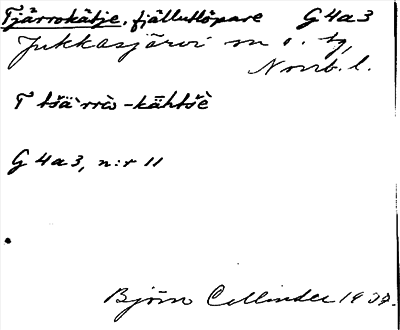 Tjärrokåtje, fjällutlöpare G4a3
Jukkasjärvi sn o. tg,
Norrb. l.
T tšä̀rrò-kāhtšè
G 4a3, n:r 11
Björn Collinder 19